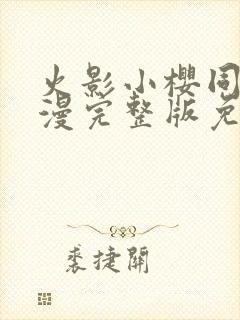 火影小樱同
漫完整版免
裘捷開